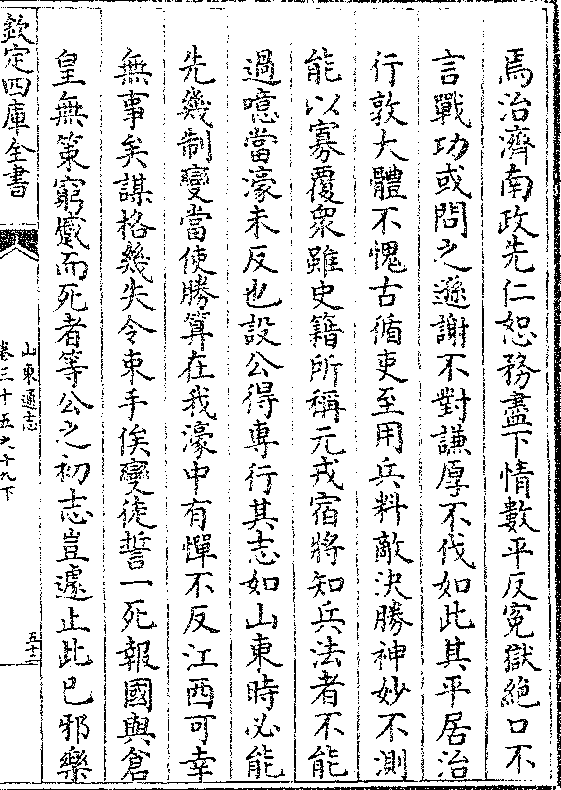 焉治濟南政先仁恕務盡下情數平反冤獄絕口不
言戰功或問之遜謝不對謙厚不伐如此其平居治
行敦大體不愧古循吏至用兵料敵決勝神妙不測
能以寡覆衆雖史籍所稱元戎宿將知兵法者不能
過噫當濠未反也設公得專行其志如山東時必能
先幾制變當使勝算在我濠中有憚不反江西可幸
無事矣謀格幾失令束手俟變徒誓一死報國與倉
皇無策窮蹙而死者等公之初志豈遽止此已邪樂
欽定四庫全書
山東通志
卷三十五之十九下
五十二